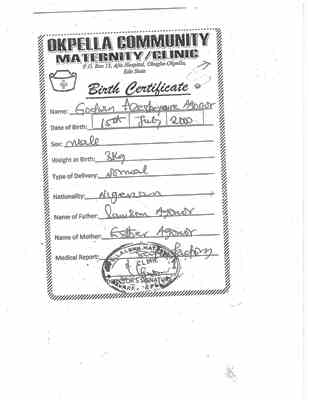 OKPELLA COMMUNITY
MATERNITY/CLINIC
P.O. Box 13, Afic Hospital, Okugbe-Okpella,
Edo State
Birth Certificate
Name: Godwin Agonor
Date of Birth: 15th July 2000
Sex: male
Weight at Birth: 3kg
Type of Delivery: Normal
Nationality: Nigerian
Name of Father: Agonor
Name of Mother: Esther Agonor
Medical Report:
CLINIC
SIGNATURE